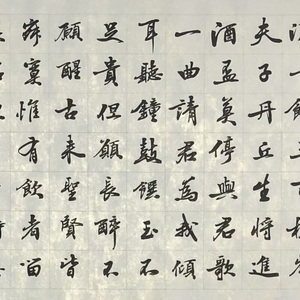 夫子丹丘生将進
酒盃莫停與君歌
一曲請君為我傾
耳聽鐘鼓饌玉不
足貴但願長醉不
願醒古來聖賢皆
寂寞惟有飲者留